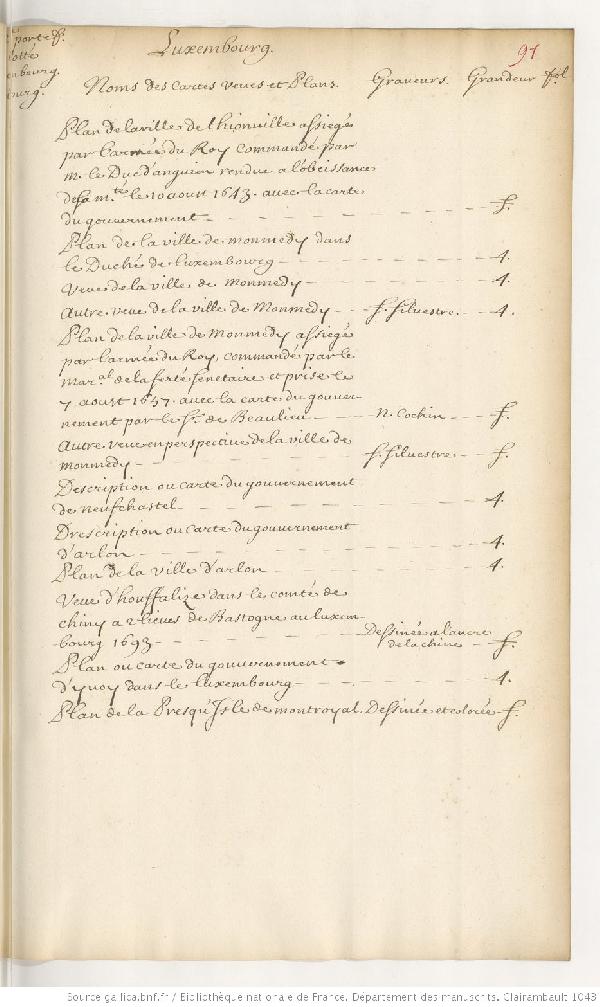 porte f.
Luxembourg.
91
Noms des cartes veues et Plans. Graveurs. Grandeur fol
Plan de la ville de thionville assiegé
par l'armée du Roy commandé par
m. le Duc d'anguien rendue a l'obeissance
de sa m.té le 10 aoust 1643. avec la carte
du gouvernement f.
Plan de la ville de monmedy dans
le Duché de luxembourg 4.
Veue de la ville de monmedy 4.
Autre veue de la ville de Monmedy f. silvestre 4.
Plan de la ville de Monmedy assiegé
par l'armée du Roy, commandé par le
mar.al de la ferté senetaire et prise le
7 aoust 1657. avec la carte du gouver
nement par le Sr. de Beaulieu N. Cochin f.
Autre veue en perspective de la ville de
monmedy f. silvestre f.
Description ou carte du gouvernement
de neufchastel 4.
Drescription ou carte du gouvernement
d'arlon 4.
Plan de la ville d'arlon 4.
Veue d'houffalize dans le comté de
chiny a 2 lieues de Bastogne au luxem
bourg 1693 Dessinée a l'ancre
de la chine f.
Plan ou carte du gouvernement
d'yvoy dans le luxembourg 4.
Plan de la Presqu'Isle de montroyal. Dessinée et colorée f.
Source gallica.bnf.fr / Bibliothèque nationale de France. Département des manuscrits. Clairambault 1043